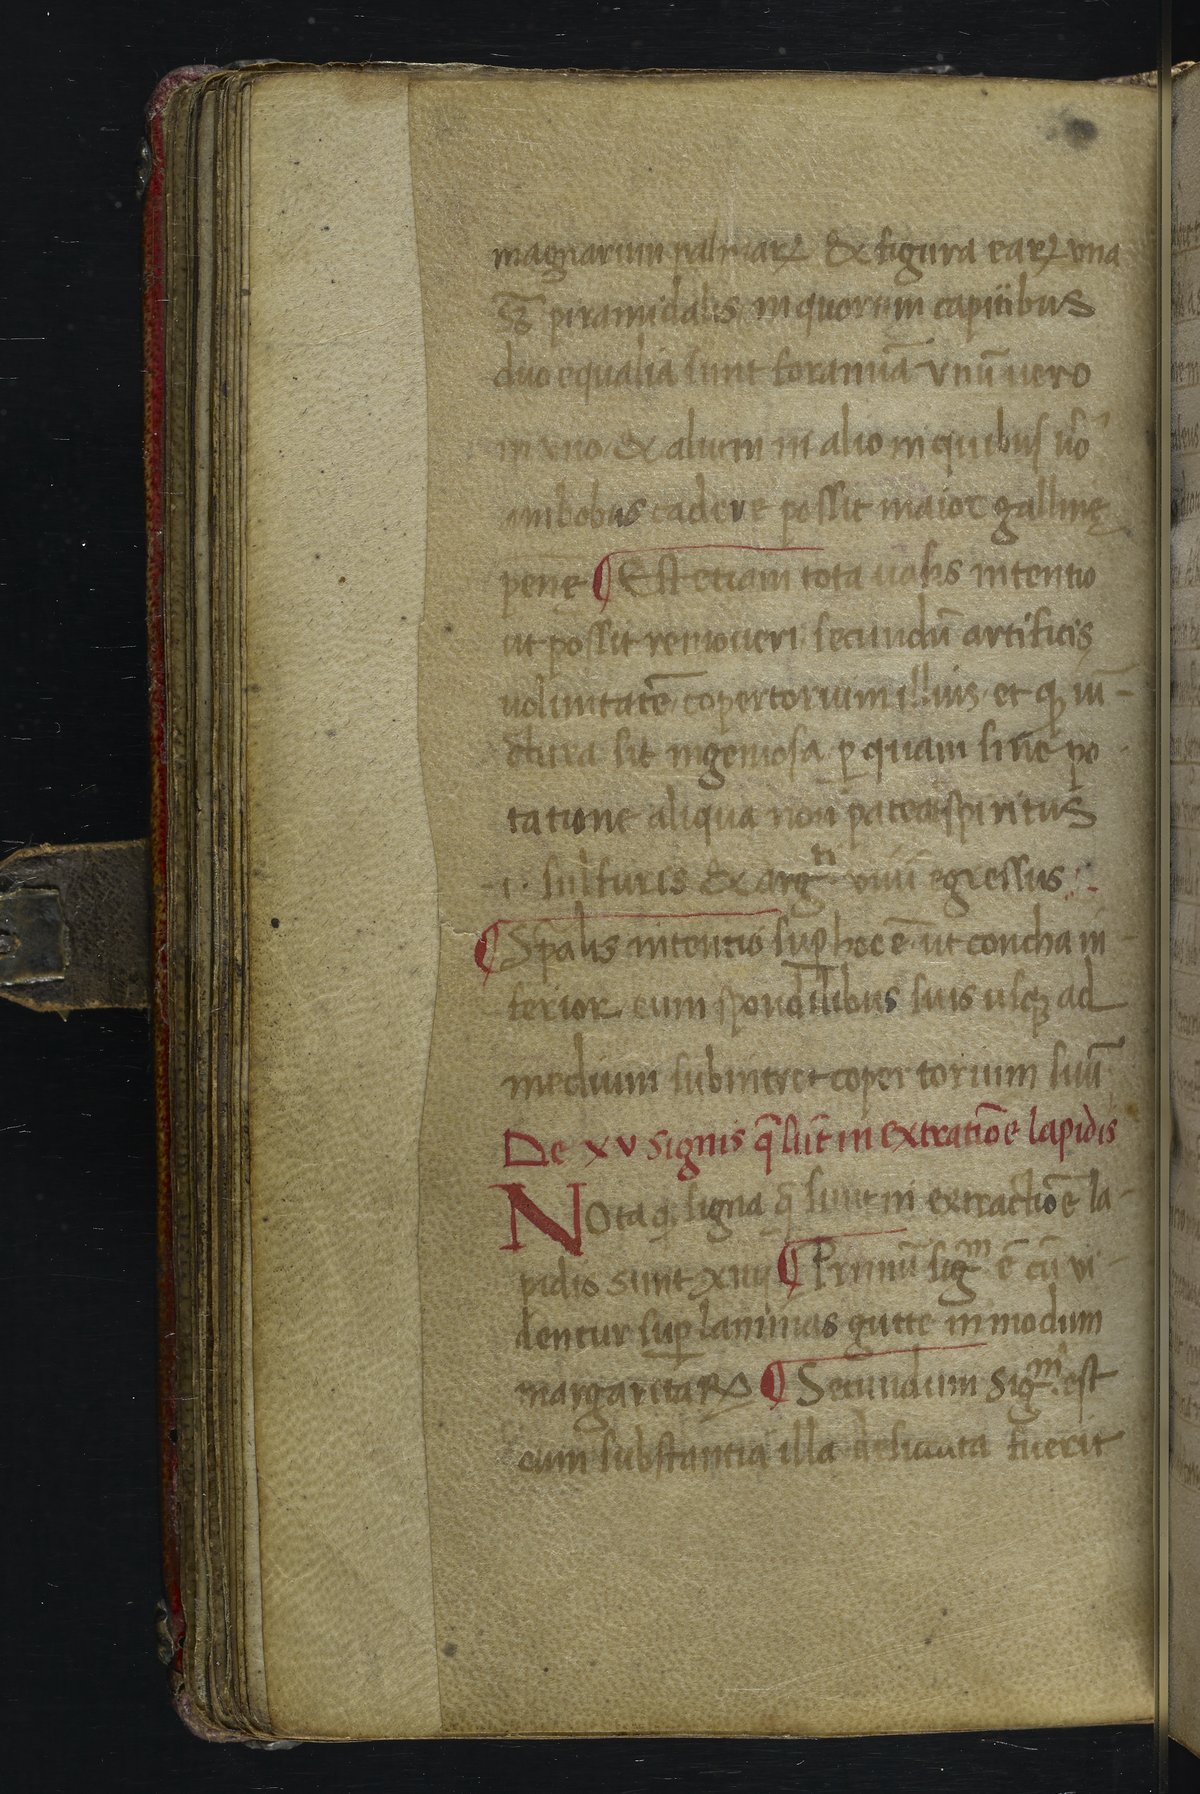 magnarum palmaꝝ & figura eaꝝ una
sꝫ piramidalis in quorum capitibus
duo equalia sunt foramĩa vnũ uero
in uno & alium in alio in quibus uº
ambobus cadere possit maior gallinę
penę ¶ Est etiam tota uasis intentio
ut possit remoueri secundũ artificis
uoluntatẽ copertorium illius et ꝙ iũ-
ctura sit ingeniosa ꝑ quam sine po
tatione aliqua non pateat spiritus
.i. sulfuris & argᵗⁱ uiui egressus
¶ Sp̃alis intentio suꝑ hoc ẽ ut concha in-
ferior cum spondilibus suis usqꝫ ad
medium subintret copertorium suũ
De xv signis q̃ sũt in extratiõe lapidis
Nota ꝙ signa q̃ sunt in extractiõe la-
pidis sunt xiiij ¶ Primũ sigᵐ ẽ cũ vi-
dentur suꝑ laminas gutte in modum
margaritaꝝ ¶ Secundum sigᵐ est
cum substantia illa desiccata fuerit